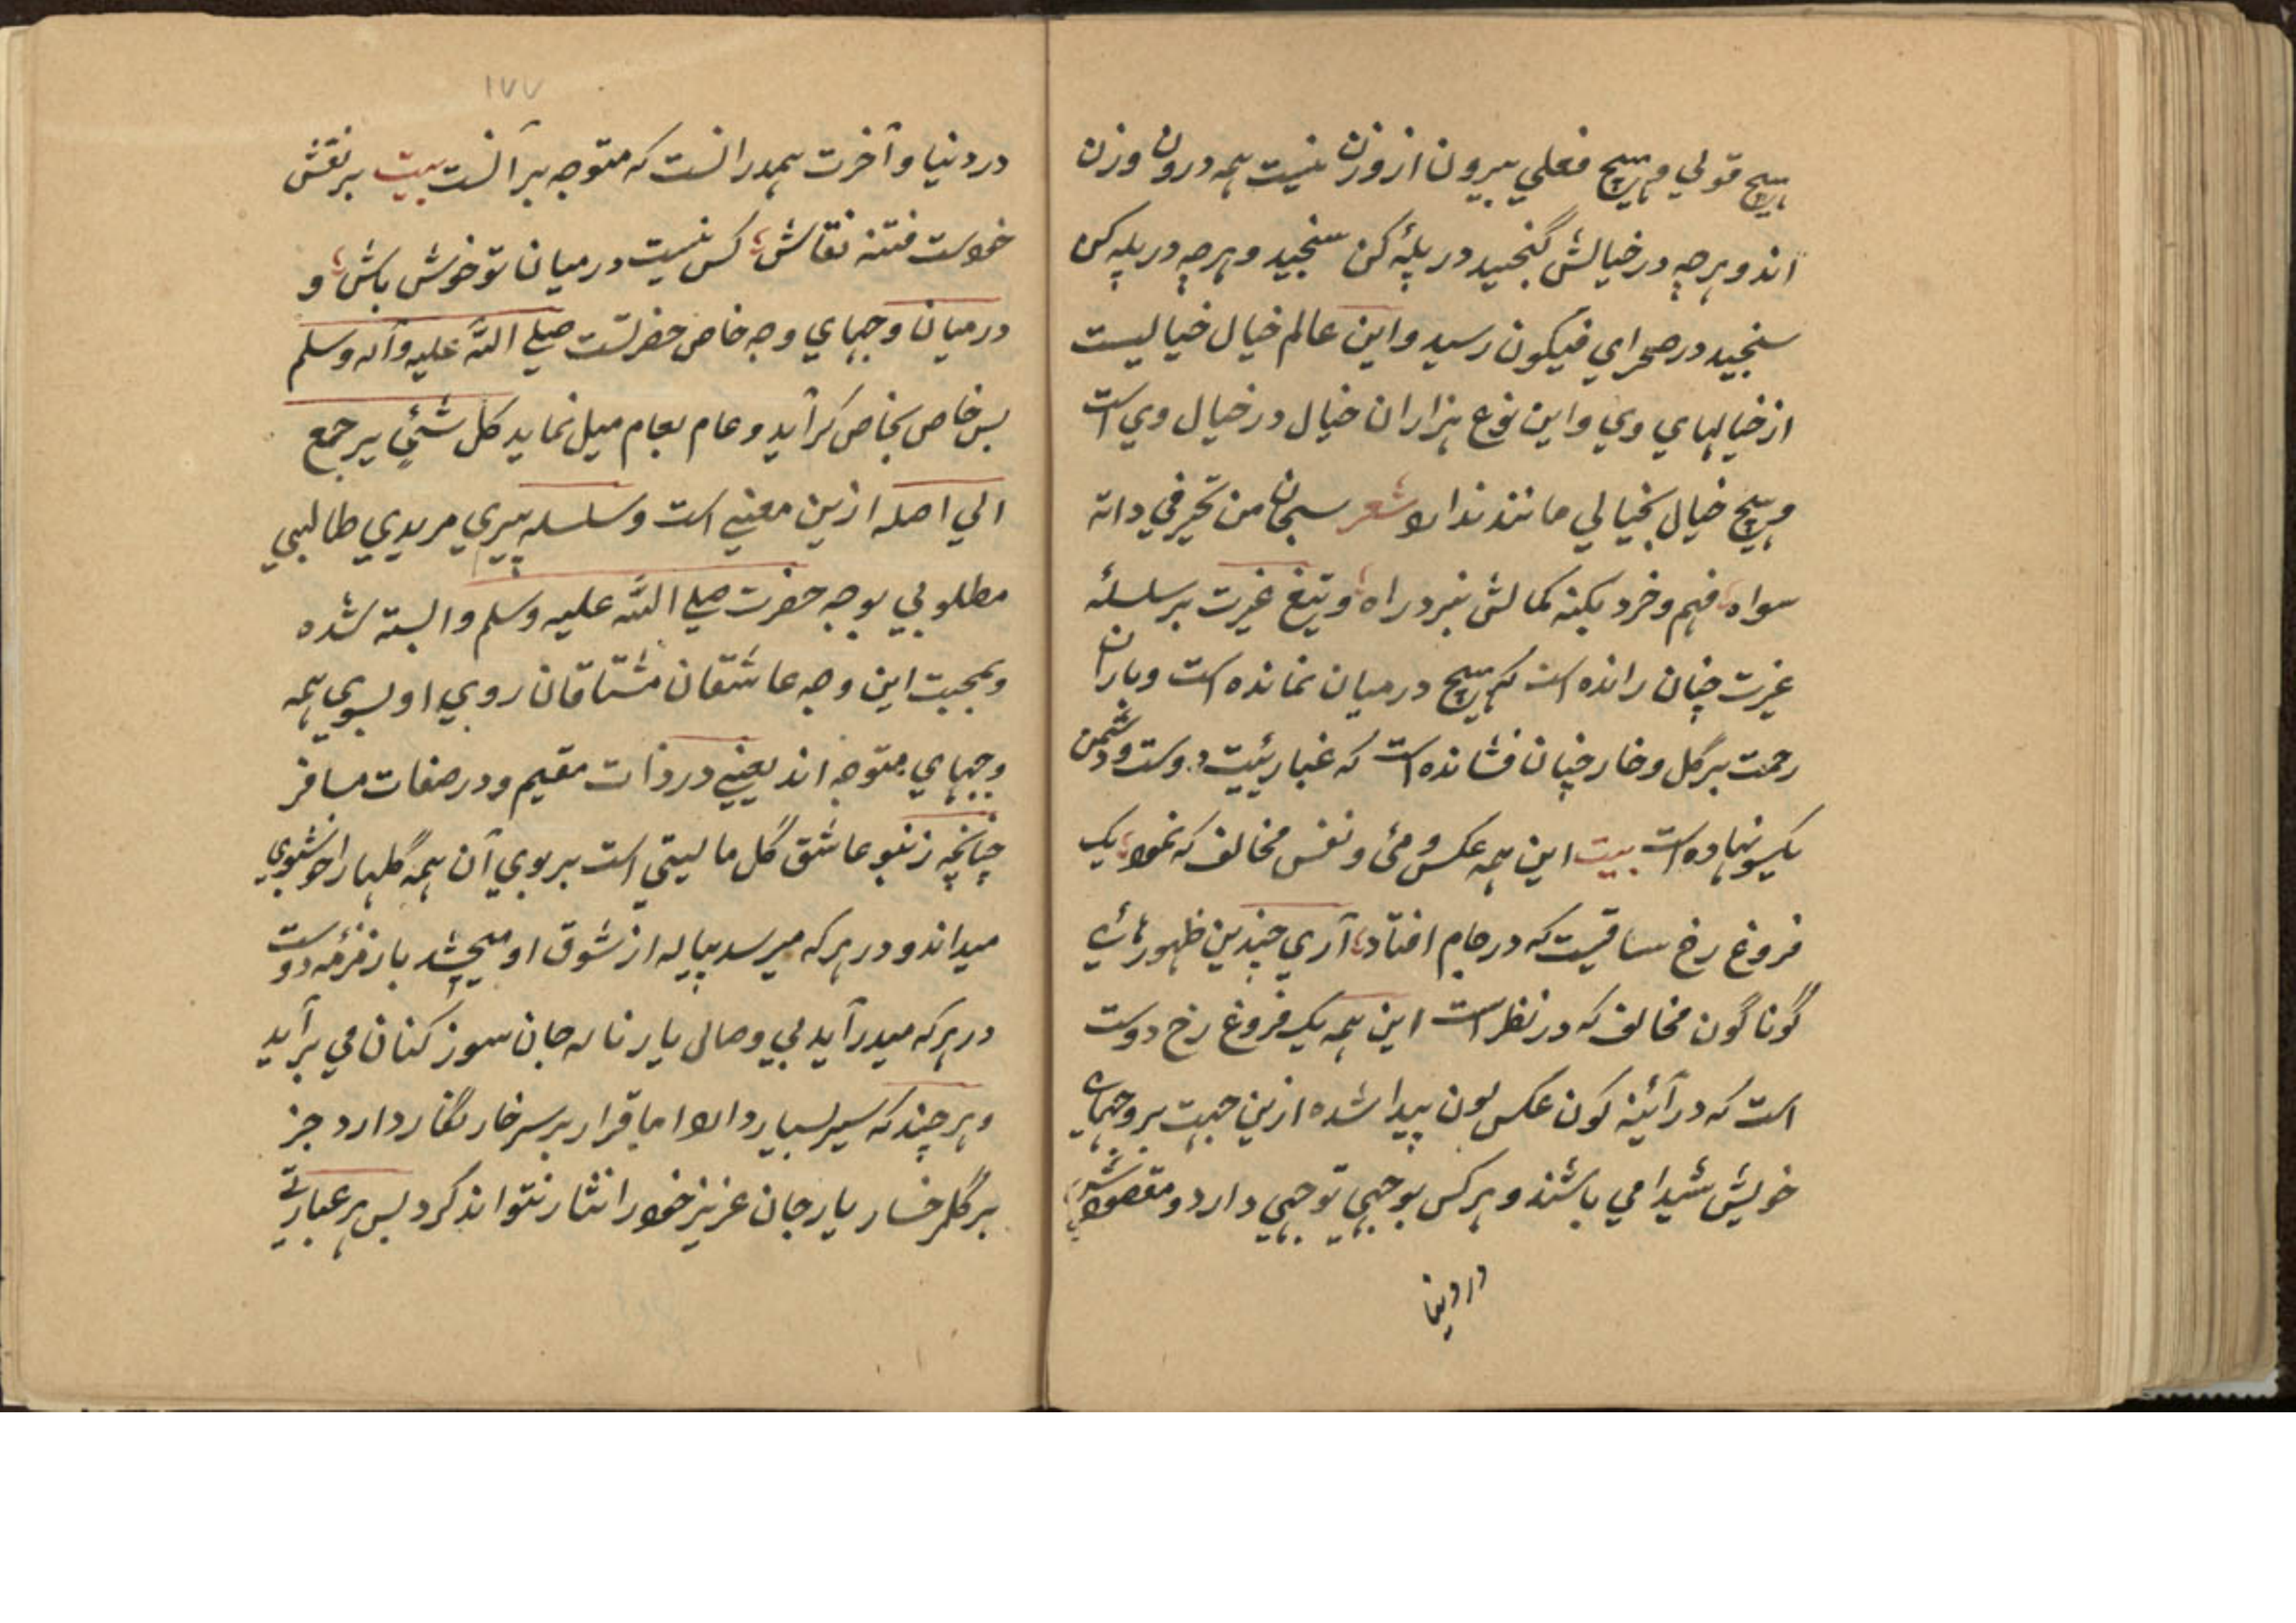 هیچ قولي و هیچ فعلي بیرون از وزن نیست همه درون وزن
اند و هرچه در خیالش گنجید در پلۀ کن سنجید و هرچه در پله کن
سنجید در صحراي فیکون رسید و این عالم خیال خیالیست
از خیالهاي وي و این نوع هزاران خیال در خیال وي است
و هیچ خیال بخیالي مانند ندارد شعر سبحان من تحیر في ذاته
سواه فهم و خرد بکنه کمالش نبرد راه و تیغ غیرت بر سلسلۀ
غیرت چنان رانده است که هیچ درمیان نمانده است و باران
رحمت بر گل و خار چنان فشانده است که غبار دوست و دشمن
یکسو نهاده است بیت این همه عکس می و نقس مخالف که نمود یک
فروغ رخ ساقیست که در جام افتاد آري چندین ظهور هاي
گوناگون مخالف که در نظر است این همه یک فروغ رخ دوست
است که در آئینه کون عکس لون پیدا شده ازین جهت بر وجهاي
خویش شیدا مي باشند و هر کس بوجهي توجهي دارد و مقصود
در دنیا
۱۷۷
در دنیا و آخرت همدرانست که متوجه بر آنست بیت بر نقش
خودست فتنه نقاش کس نیست درمیان تو خوش باش و
درمیان وجهاي وجه خاص حضرتست صلے الله علیه وآله وسلم
پس خاص بخاص گراید و عام بعام میل نماید کل شئي یرجع
الي اصله ازین معنیے است و سلسله پیري مریدي طالبي
مطلوبي بوجه حضرت صلے الله علیه وسلم وابسته شده
و بمحبت این وجه عاشقان مشتاقان روي او بسوي همه
وجهاي متوجه اند یعنیے در ذات مقیم و در صفات مسافر
چنانچه زنبو عاشق گل مالیتي است بر بوي آن همه گلها را خوشبوي
میداند و در هر که میرسد پیاله از شوق او میچشد باز زمزمه دوست
در هر که میدرآید بي وصال یار ناله جان سوز کنان مي برآید
و هر چند که سیر بسیار دارد اما قرار بر سر خار نگار دارد جز
بر گلرخسار یار جان عزیز خود را نثار نتواند کرد پس هر عبارتے